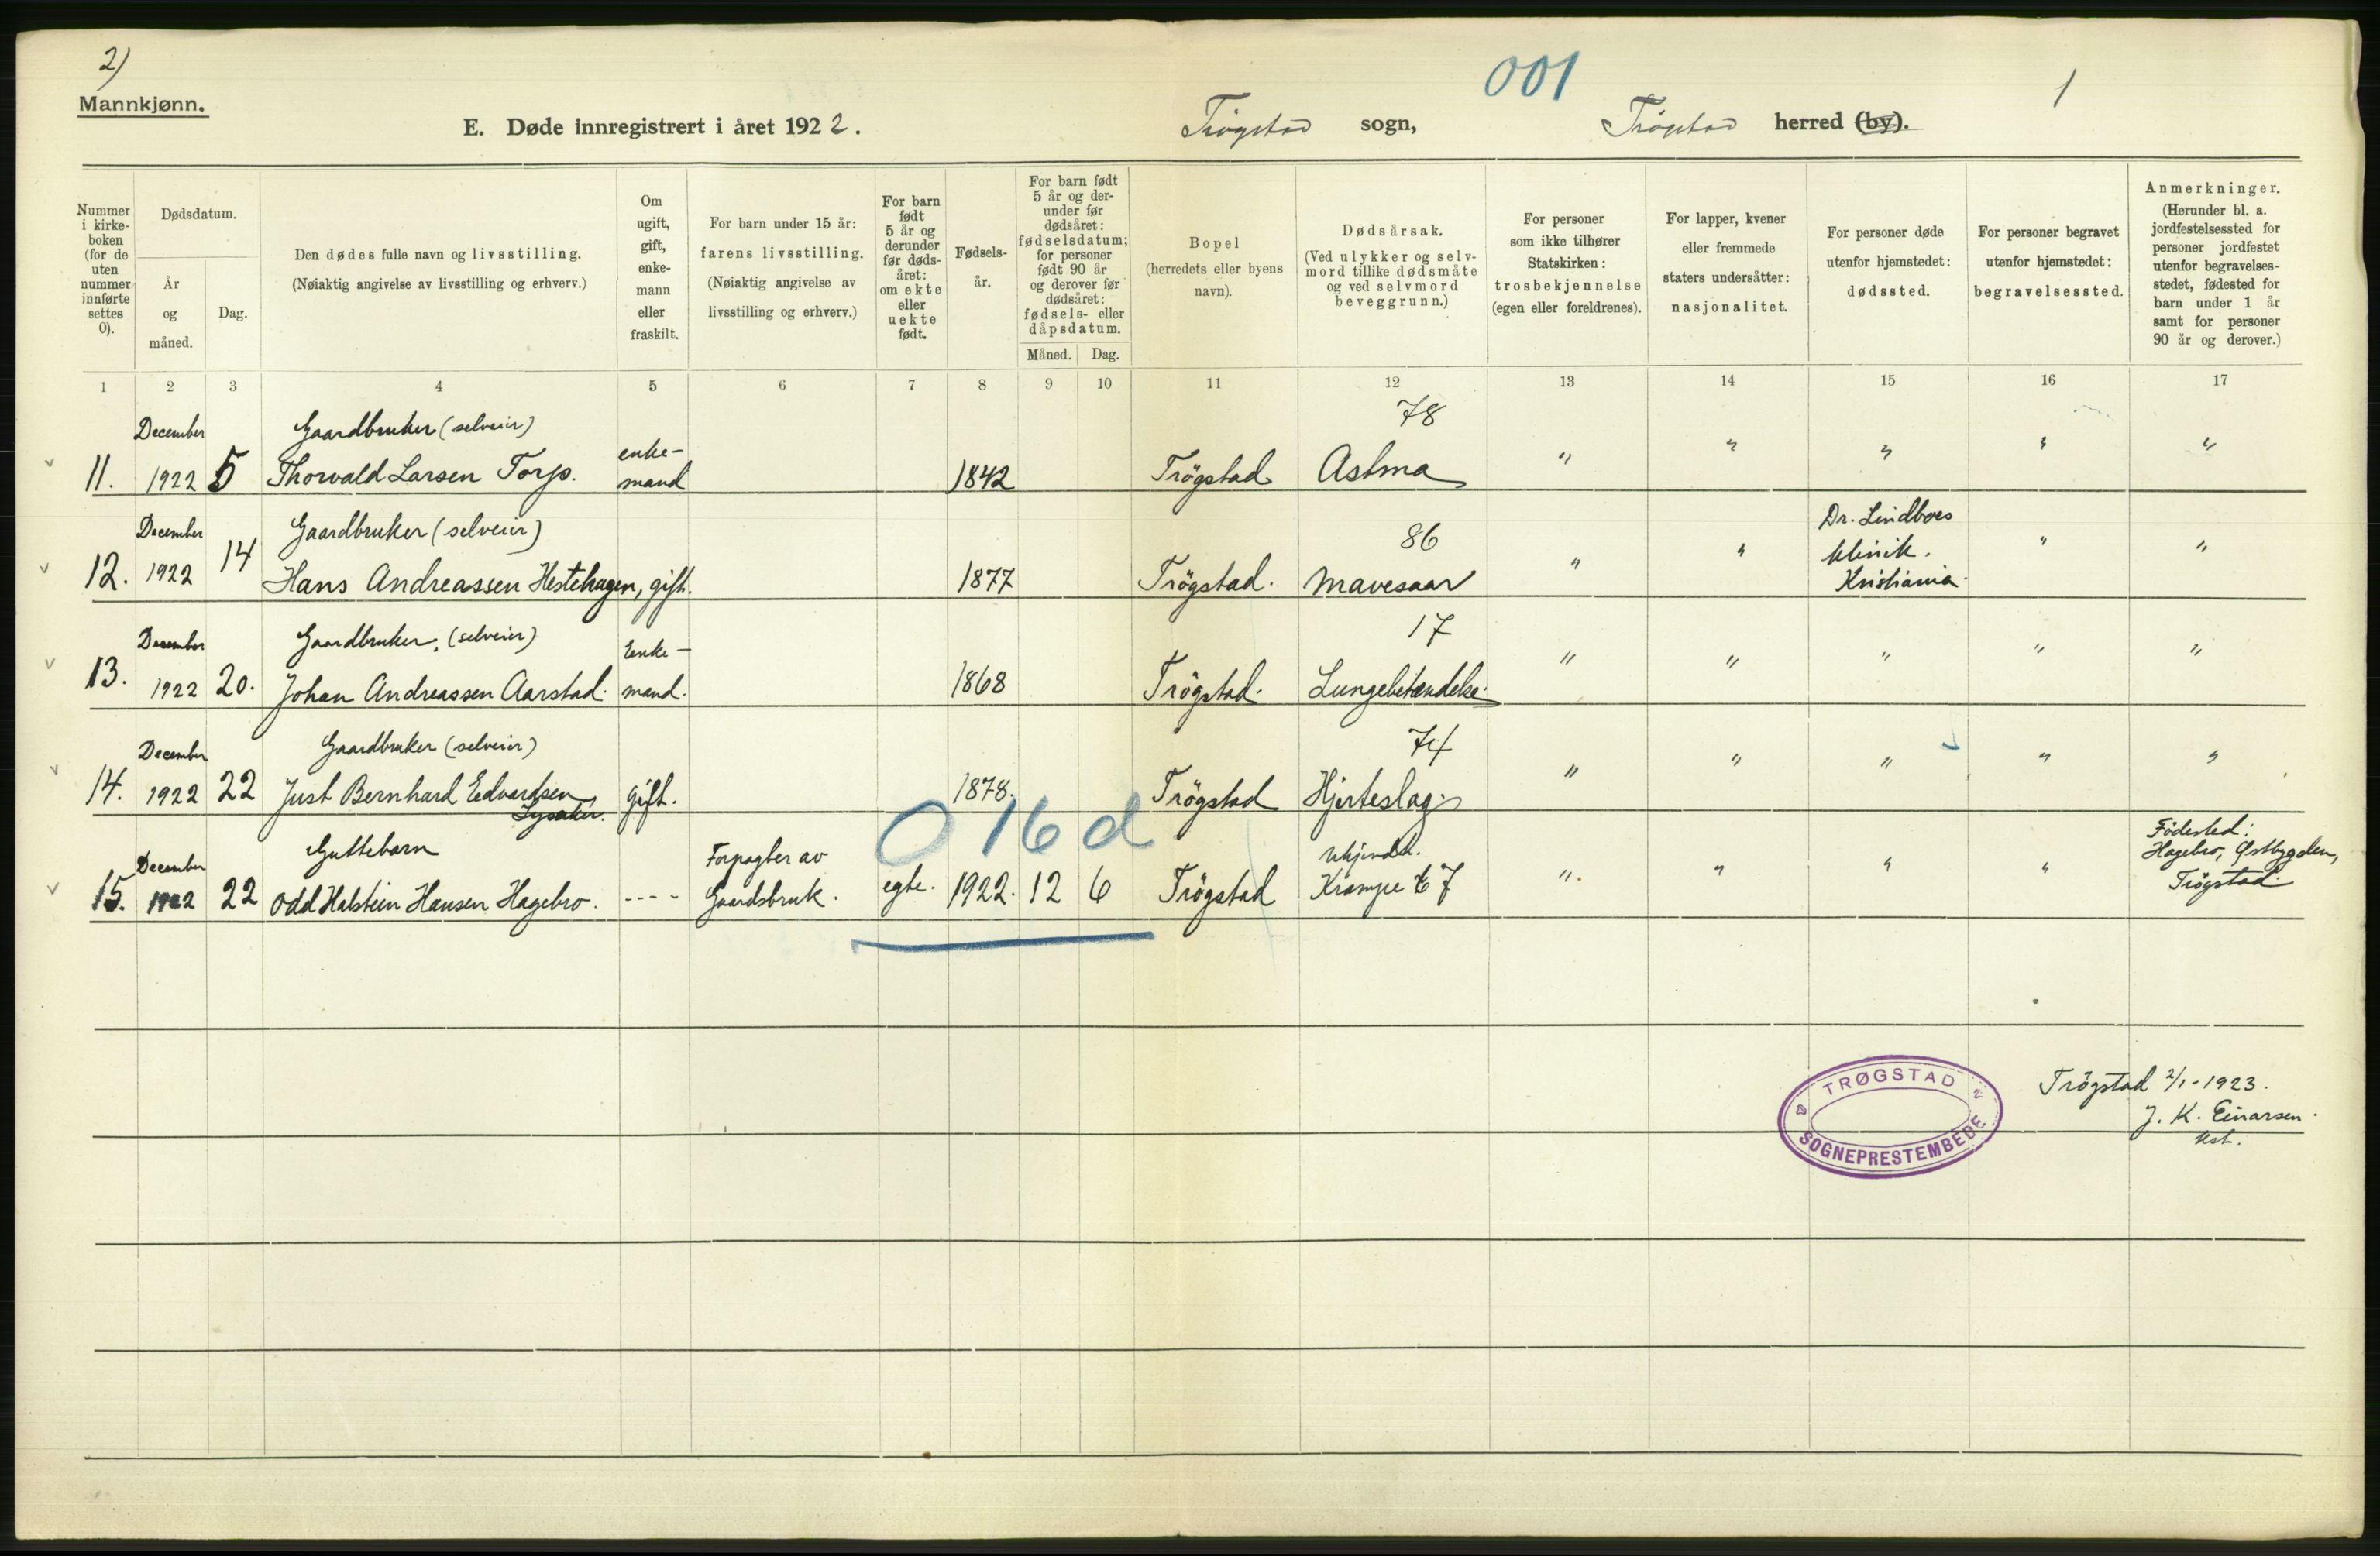 2)
Mannkjønn.
E. Døde innregistrert i året 1922.
Trögstad sogn,
001
Trögstad herred (by).
1
Nummer i kirke-boken (for de uten nummer innførte settes 0).
Dødsdatum.
År og måned.
Dag.
Den dødes fulle navn og livsstilling.
(Nøiaktig angivelse av livsstilling og erhverv.)
Om ugift, gift, enke-mann eller fraskilt.
For barn under 15 år:
farens livsstilling.
(Nøiaktig angivelse av livsstilling og erhverv.)
For barn født 5 år og derunder før døds-året: om ekte eller uekte født.
Fødsels-år.
For barn født 5 år og der-under før dødsåret: fødselsdatum; for personer født 90 år og derover før dødsåret: fødsels- eller dåpsdatum.
Måned. Dag.
Bopel
(herredets eller byens navn).
Dødsårsak.
(Ved ulykker og selv-mord tillike dødsmåte og ved selvmord beveggrunn.)
For personer som ikke tilhører Statskirken: trosbekjennelse (egen eller foreldrenes).
For lapper, kvener eller fremmede staters undersåtter: nasjonalitet.
For personer døde utenfor hjemstedet: dødssted.
For personer begravet utenfor hjemstedet: begravelsessted.
Anmerkninger.
(Herunder bl. a. jordfestelsessted for personer jordfestet utenfor begravelses-stedet, fødested for barn under 1 år samt for personer 90 år og derover.)
1 2 3 4 5 6 7 8 9 10 11 12 13 14 15 16 17
December Gaardbruker (selveier) enke- 78
v 11. 1922 5 Thorvald Larsen Torp. mand 1842 Trögstad Astma " " " " "
December Gaardbruker (selveier) 86 Dr. Lindboes
v 12. 1922 14 Hans Andreassen Hestehagen, gift. 1877 Trögstad. Mavesaar " " klinik. " "
Kristiania.
December Gaardbruker, (selveier) Enke- 17
v 13. 1922 20. Johan Andreassen Aarstad. mand. 1868 Trögstad. Lungebetændelse. " " " " "
December Gaardbruker (selveier) 74
v 14. 1922 22 Just Bernhard Edvardsen gift. 1878. Trögstad Hjerteslag. " " " " "
Lysaker.
016d
December Guttebarn Forpagter av Ukjendt. Födested:
v 15. 1922 22 Odd Halstein Hansen Hagebro. ---- Gaardsbruk. egte. 1922. 12 6 Trögstad Krampe 67 " " " " Hagebro, Østbygden,
Trögstad.
TRØGSTAD
SOGNEPRESTEMBEDE
Trögstad 2/1-1923.
J. K. Einarsen.
kst.